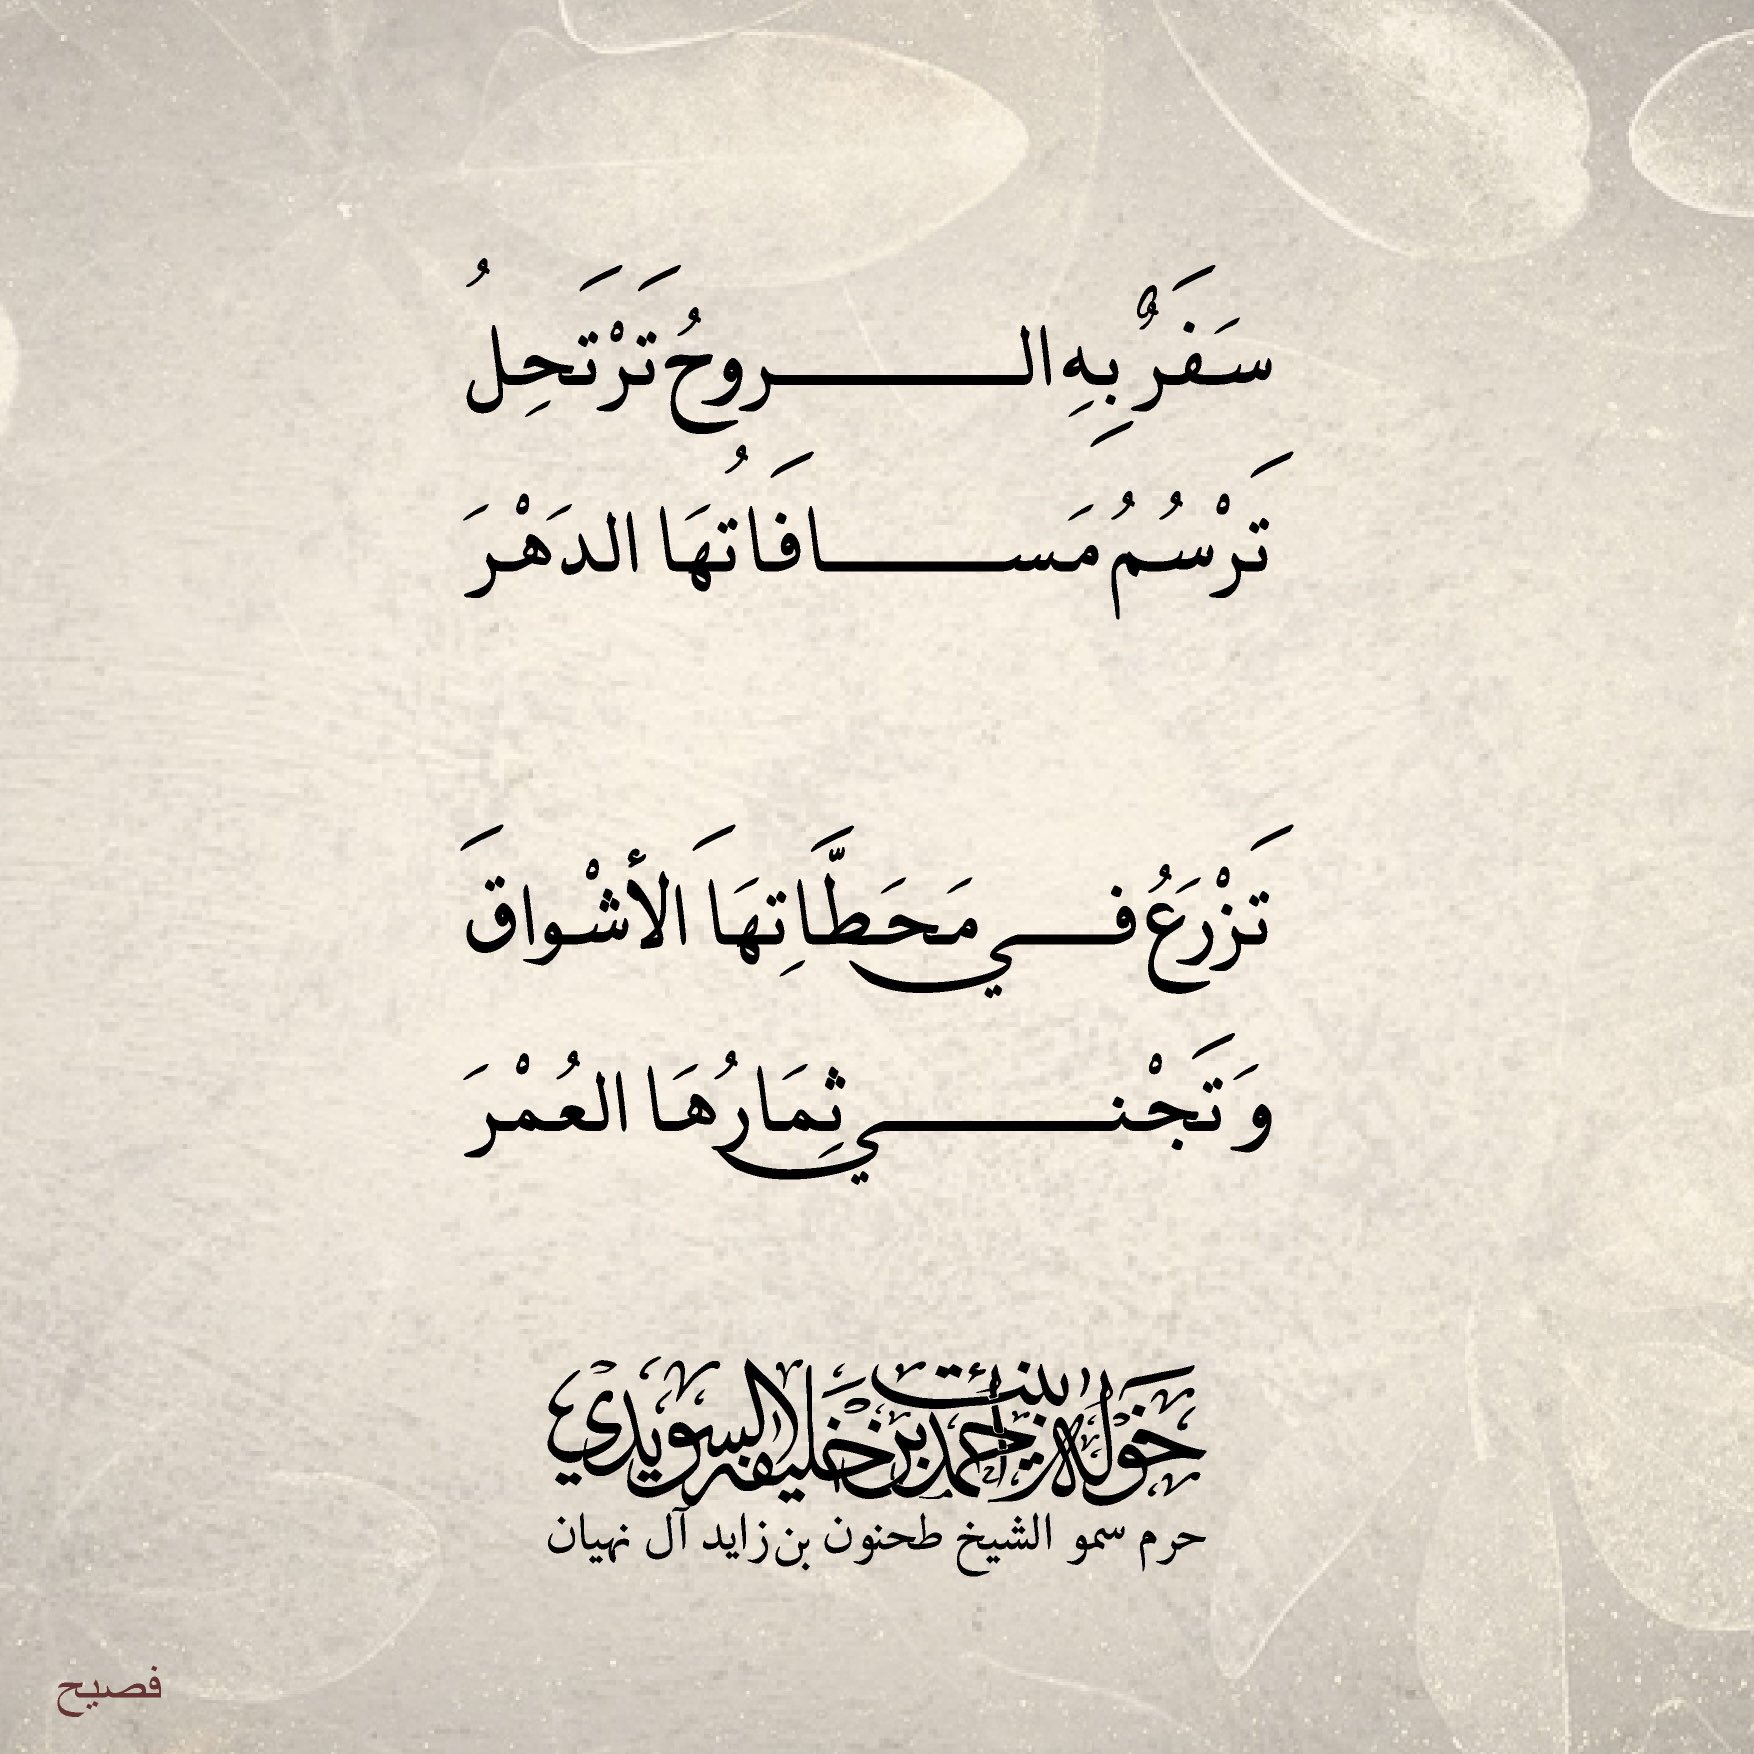 سَفَرٌ بِهِ الـــروحُ تَرْتَحِلُ
تَرْسُمُ مَســـافَاتُهَا الدَهْرَ
تَزْرَعُ فـــي مَحَطَّاتِهَا الَأشْواقَ
وَتَجْنـــي ثِمَارُهَا العُمْرَ
خولة بنت أحمد بن خليفة السويدي
حرم سمو الشيخ طحنون بن زايد آل نهيان
فصيح